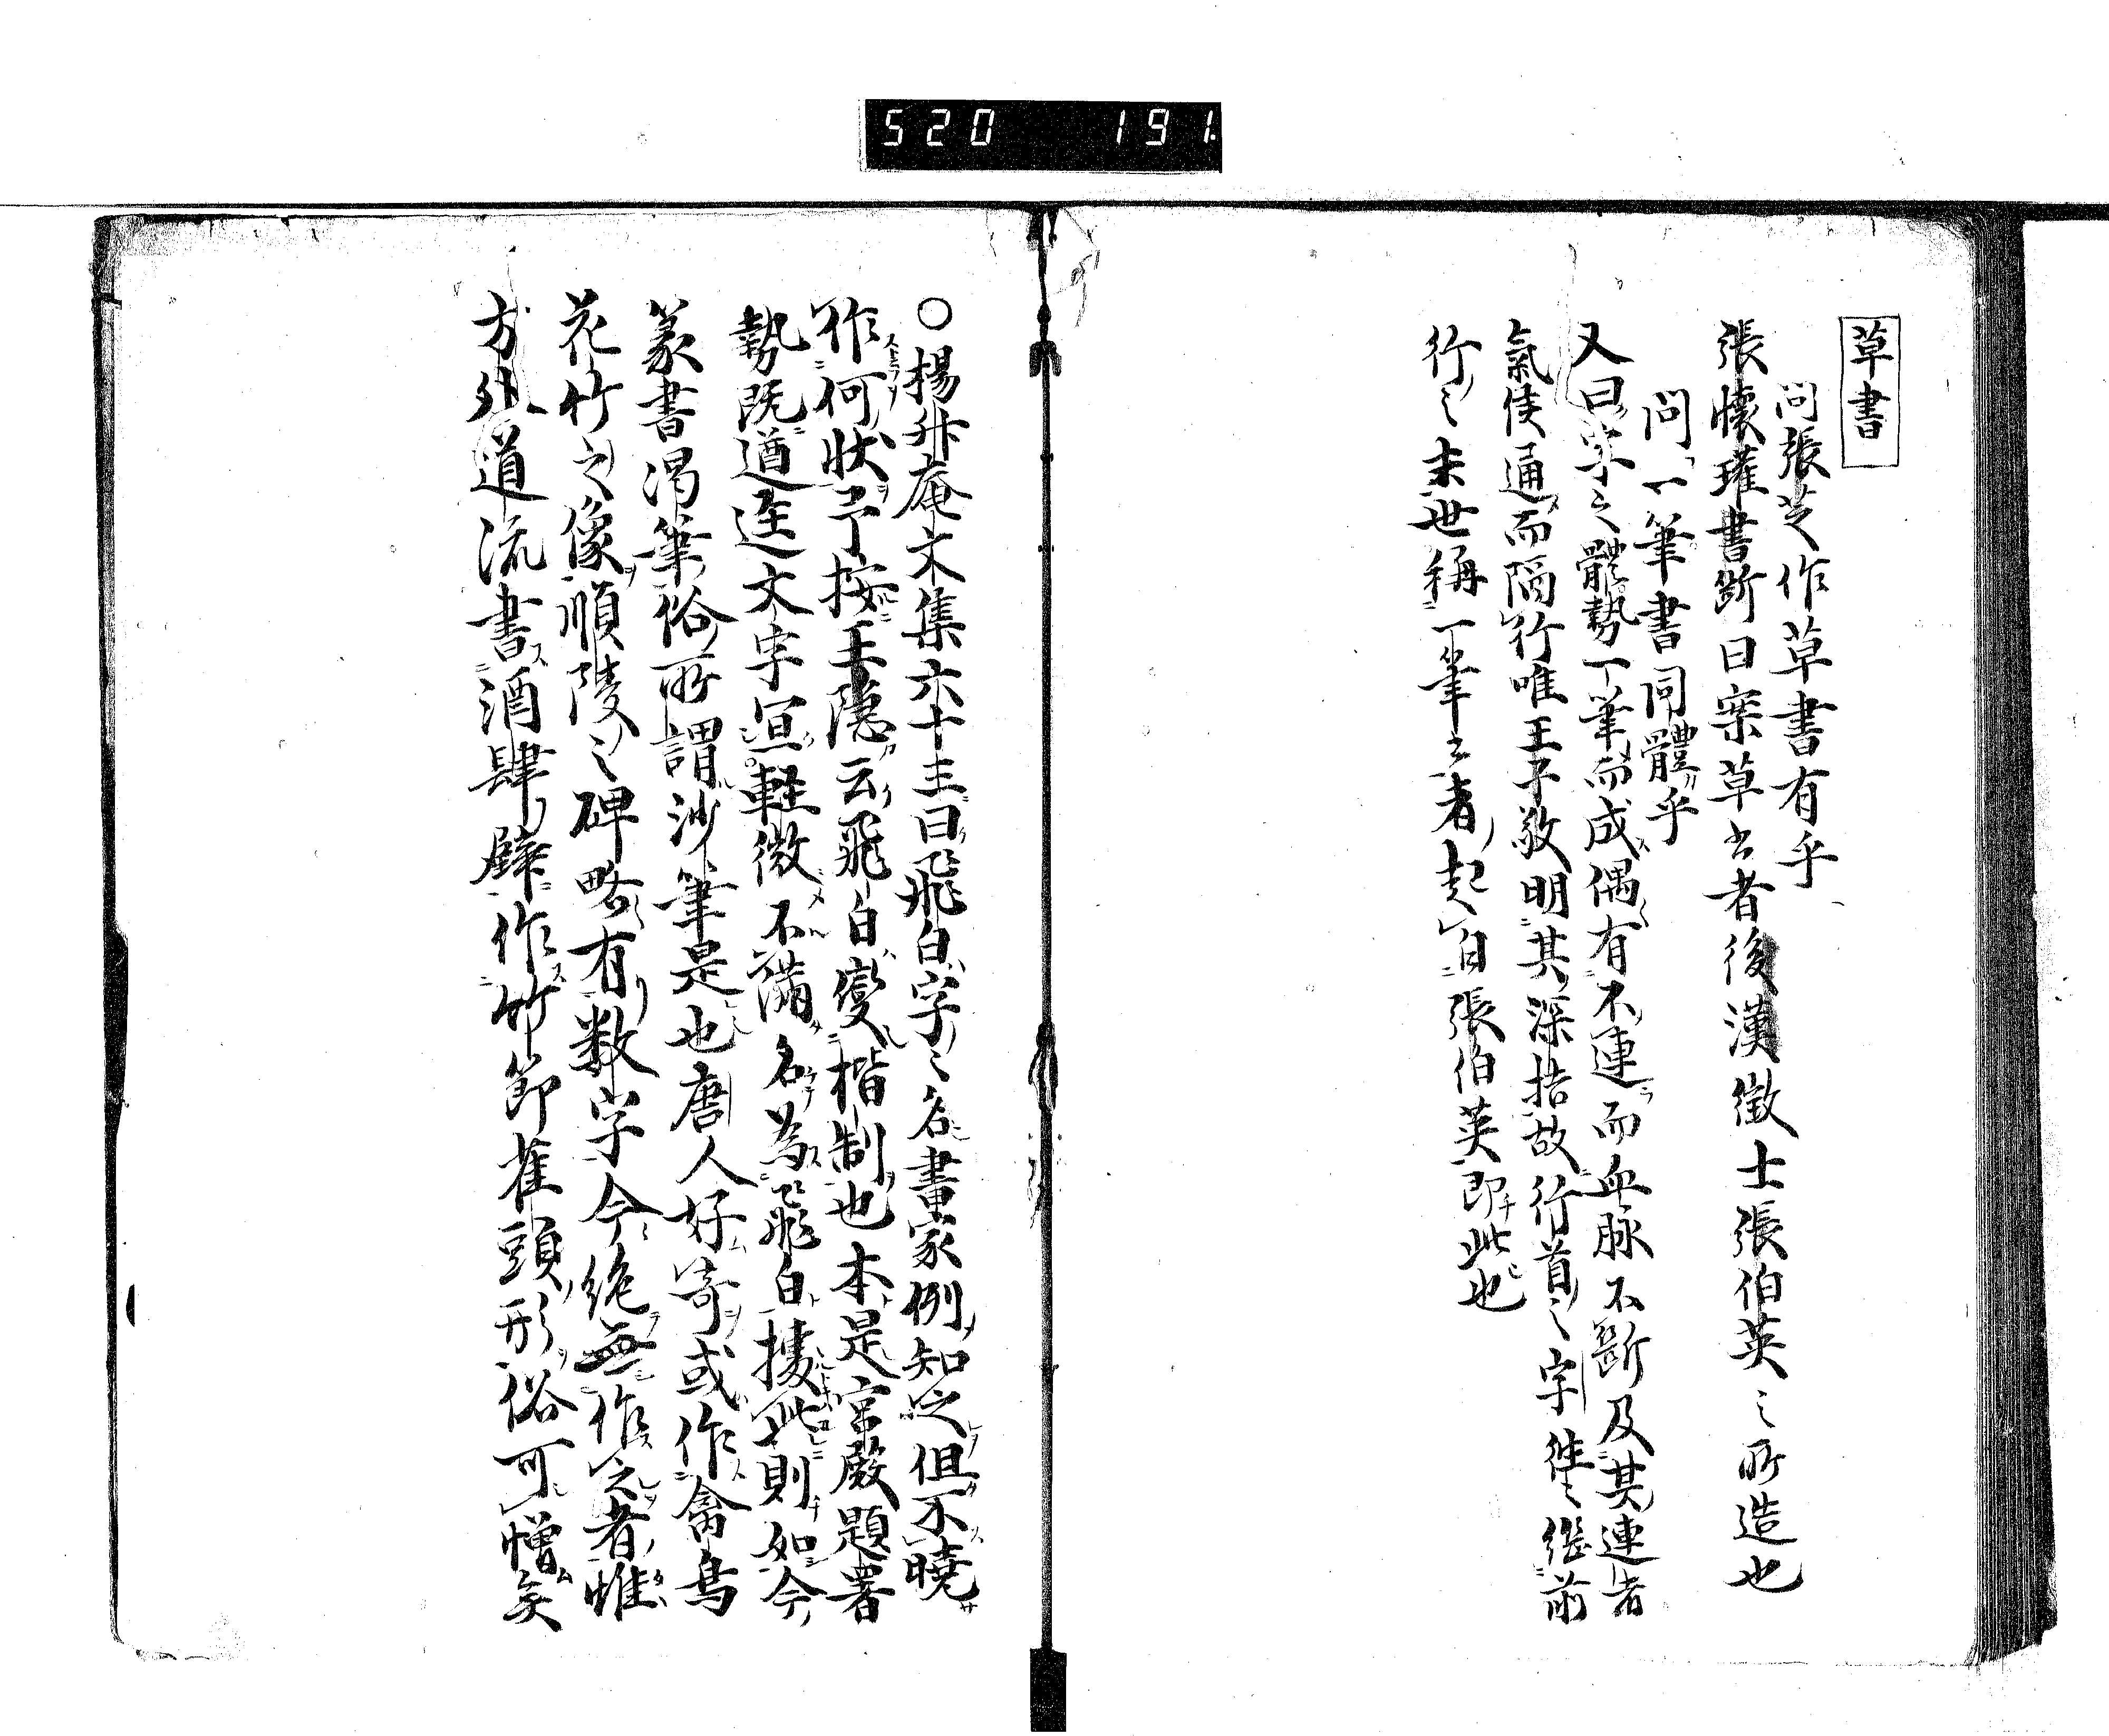 520 191
草書
問張芝作草書有乎
張懷瓘書断曰案草書者後漢徵士張伯英之所造也
問一筆書同體乎
又曰字之體勢一筆而成偶有不連而血脉不斷及其連者
氣候通而隔行唯王子敬明其深指故行首之字往々継前
行之末世稱一筆書者起自張伯英即此也
〇楊升庵文集六十三曰飛白字之名書家例知之但不暁
作何状予按王隠云飛白變楷制也本是宮殿題署
勢既遒逕文字宜軽微不満名為飛白據此則如今
篆書渇筆俗所謂沙筆是也唐人好竒或作禽鳥
花竹之像順陵之碑略有数字今絶無作之者惟
方外道流書酒肆壁作竹節雀頭形俗可憎矣